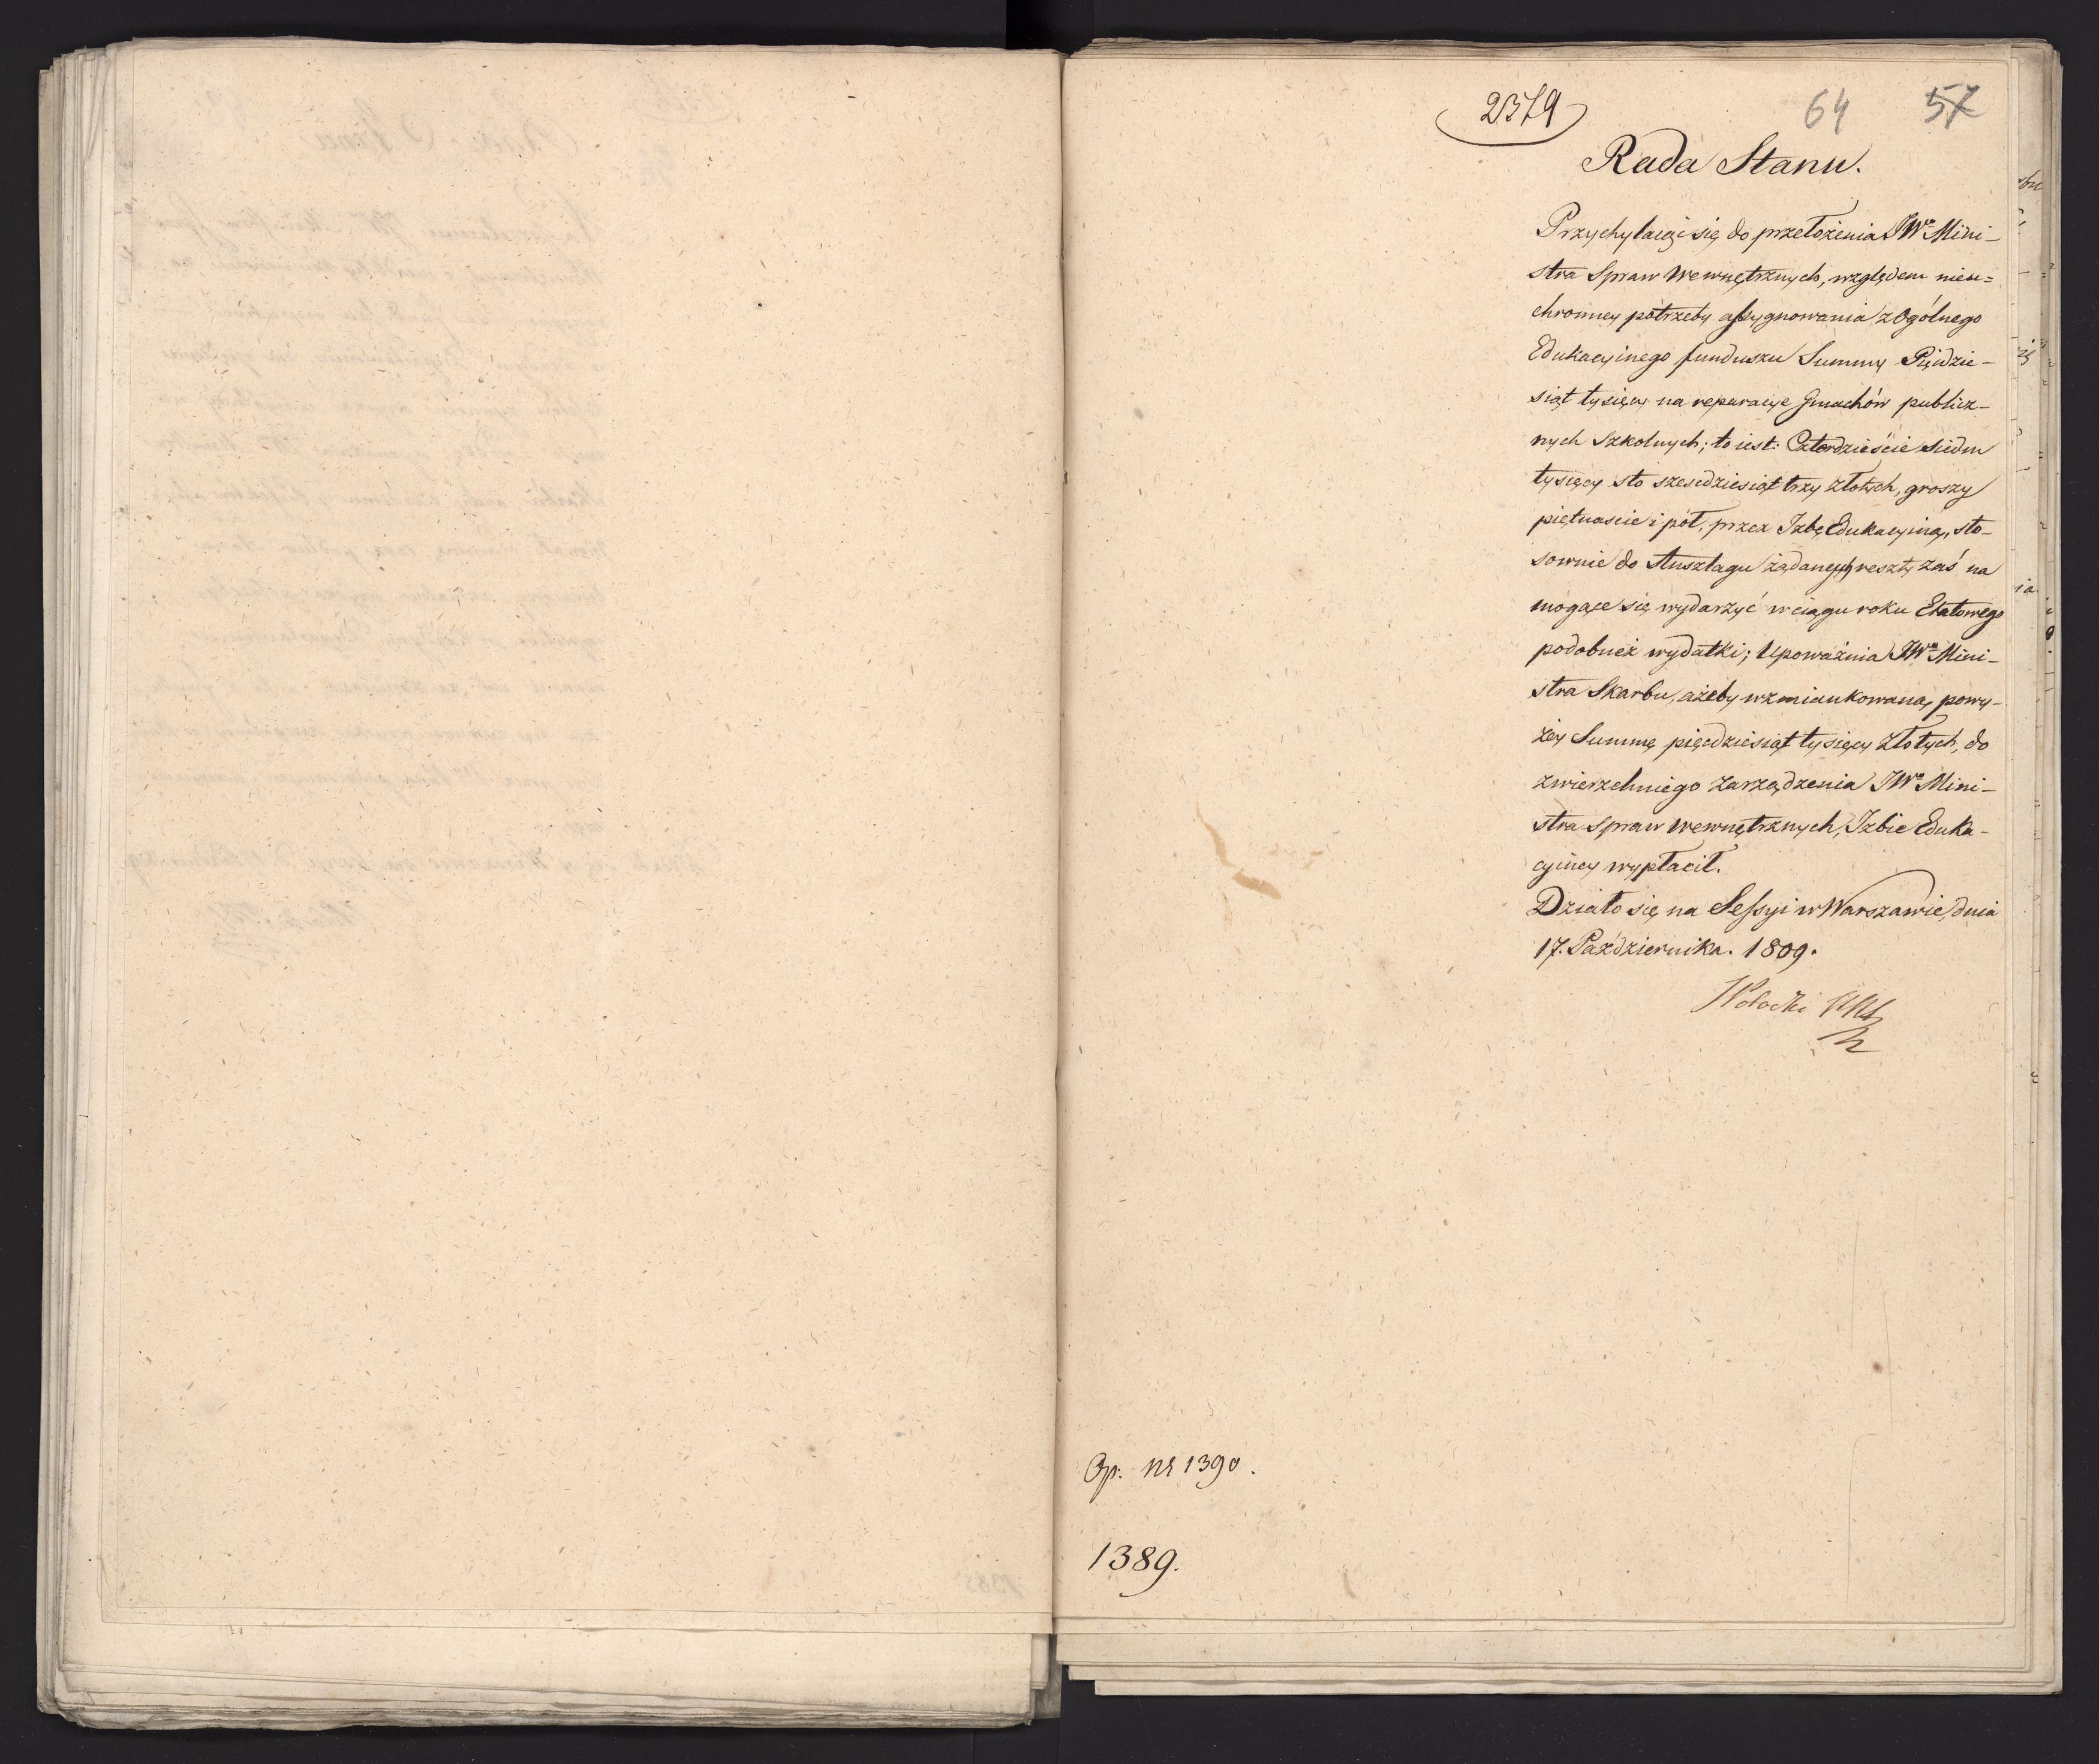 2379
64 57
Rada Stanu.
Przychylaiąc się do przełożenia JWo Mini-
stra Spraw Wewnętrznych, względem nieu=
chronney potrzeby assygnowania z Ogólnego
Edukacyinego funduszu Summy Pięidzie-
siąt tysięcy na reparacye Gmachów publicz-
nych Szkolnych; to iest: Czterdzieście siedm
tysięcy sto szesćdziesiąt trzy złotych, groszy
piętnaście i pół, przez Izbę Edukacyiną, sto-
sownie do Anszlagu żądanych resztę zaś na
mogące się wydarzyć w ciągu roku Etatowego
podobneż wydatki; Upoważnia JWo Mini-
stra Skarbu, ażeby wzmiankowaną powy-
żey Summę pięćdziesiąt tysięcy złotych, do
zwierzchniego zarządzenia JWo Mini-
stra Spraw Wewnętrznych, Izbie Eduka-
cyiney wypłacił.
Działo się na Sessyi w Warszawie, dnia
17. Października. 1809.
Potocki
Op: nr 1390.
1389.